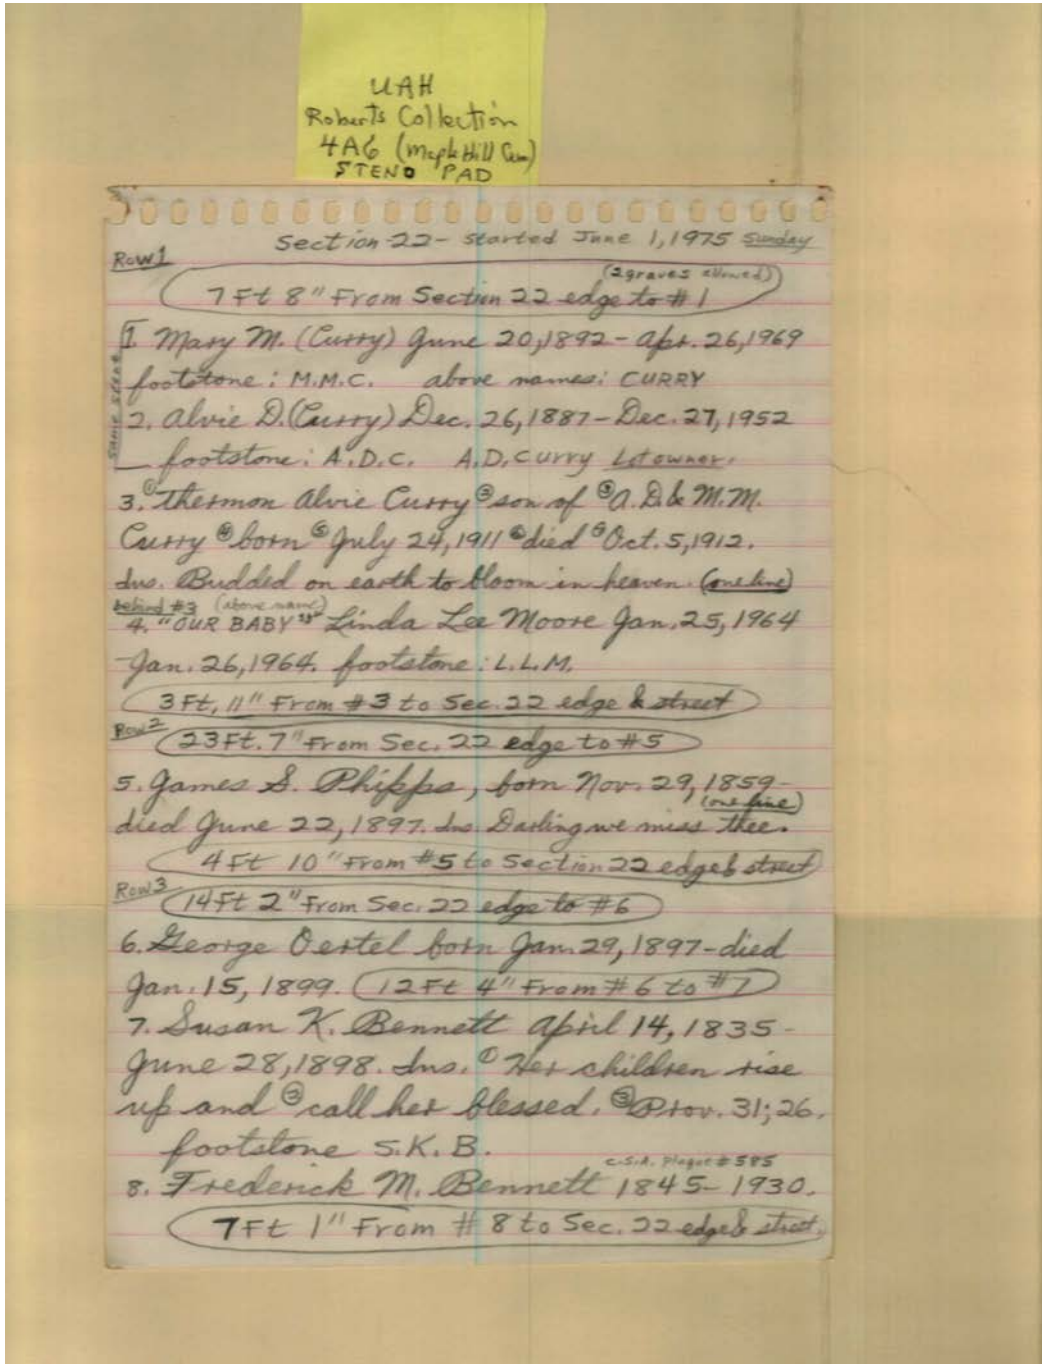 UAH
Roberts Collection
4A6 (Maple Hill Cem)
STENO PAD
Section-22- started June 1, 1975 Sunday
Row 1
(2 graves allowed)
7 Ft 8" From Section 22 edge to #1
1. Mary M. (Curry) June 20, 1892 - Apr. 26, 1969
same stone
footstone: M.M.C. above names: CURRY
2. Alvie D. (Curry) Dec. 26, 1887 - Dec. 27, 1952
footstone: A.D.C. A.D. Curry Lot owner.
3. ① Thermon Alvie Curry ② son of ③ A.D. & M.M.
Curry ④ born ⑤ July 24, 1911 ⑥ died Oct. 5, 1912.
Ins. Budded on earth to bloom in heaven. (one line)
behind #3 (above name)
4. "OUR BABY" Linda Lee Moore Jan. 25, 1964
Jan. 26, 1964. footstone: L.L.M.
3 Ft, 11" From #3 to Sec. 22 edge & street
Row 2
23 Ft. 7" From Sec. 22 edge to #5
5. James S. Phipps, born Nov. 29, 1859-
(one line)
died June 22, 1897. Ins Darling we miss thee.
4 Ft 10" From #5 to Section 22 edge & street
Row 3
14 Ft 2" From Sec. 22 edge to #6
6. George Oertel born Jan. 29, 1897-died
Jan. 15, 1899. 12 Ft 4" From #6 to #7
7. Susan K. Bennett April 14, 1835-
June 28, 1898. Ins. ① Her children rise
up and ② call her blessed. ③ Prov. 31; 26.
footstone S.K.B.
C.S.A. Plaque #585
8. Frederick M. Bennett 1845-1930.
7 Ft 1" From #8 to Sec. 22 edge & street.